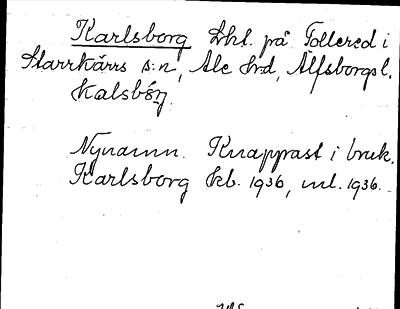 Karlsborg Lht. på Tollered i
Starrkärrs s:n, Ale hd, Älfsborgs l.
Kalsbǿrj.
Nynamn. Knappast i bruk.
Karlsborg kb. 1936, ml. 1936.